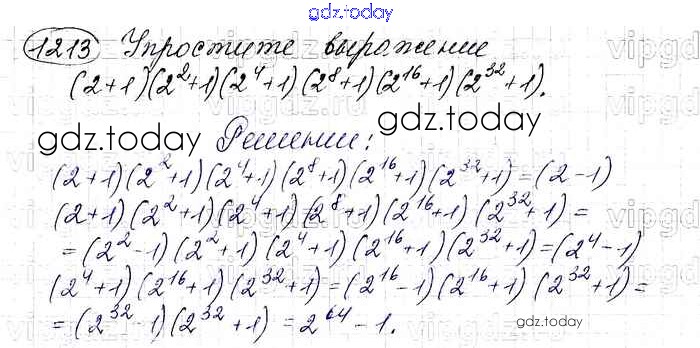 gdz.today
1213 Упростите выражение
(2+1)(2²+1)(2⁴+1)(2⁸+1)(2¹⁶+1)(2³²+1).
gdz.today gdz.today
Решении:
(2+1)(2²+1)(2⁴+1)(2⁸+1)(2¹⁶+1)(2³²+1)=(2-1)
(2+1)(2²+1)(2⁴+1)(2⁸+1)(2¹⁶+1)(2³²+1)=
=(2²-1)(2²+1)(2⁴+1)(2¹⁶+1)(2³²+1)=(2⁴-1)
(2⁴+1)(2¹⁶+1)(2³²+1)=(2¹⁶-1)(2¹⁶+1)(2³²+1)=
=(2³²-1)(2³²+1)=2⁶⁴-1.
gdz.today